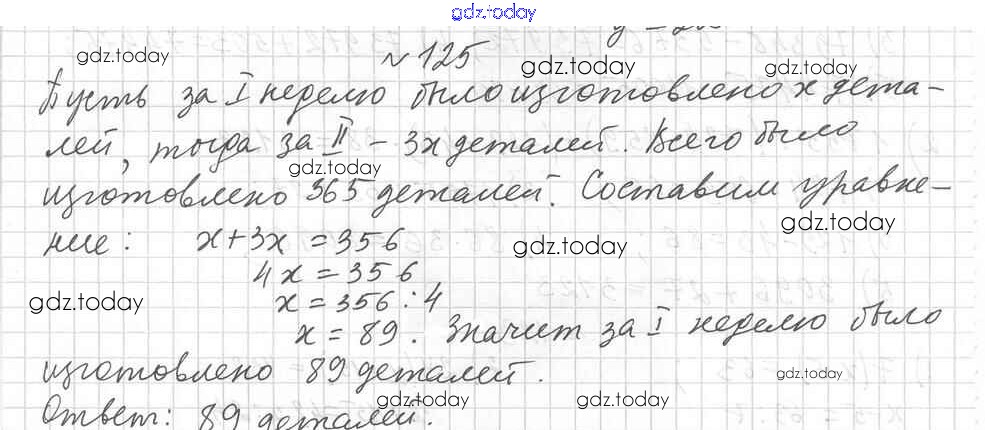 gdz.today
№ 125
Пусть за I неделю было изготовлено x дета-
лей, тогда за II – 3x деталей. Всего было
изготовлено 365 деталей. Составим уравне-
ние: x+3x = 356
4x = 356
x = 356 : 4
x = 89. Значит за I неделю было
изготовлено 89 деталей.
Ответ: 89 деталей.
gdz.today
gdz.today
gdz.today
gdz.today
gdz.today
gdz.today
gdz.today
gdz.today
gdz.today
gdz.today